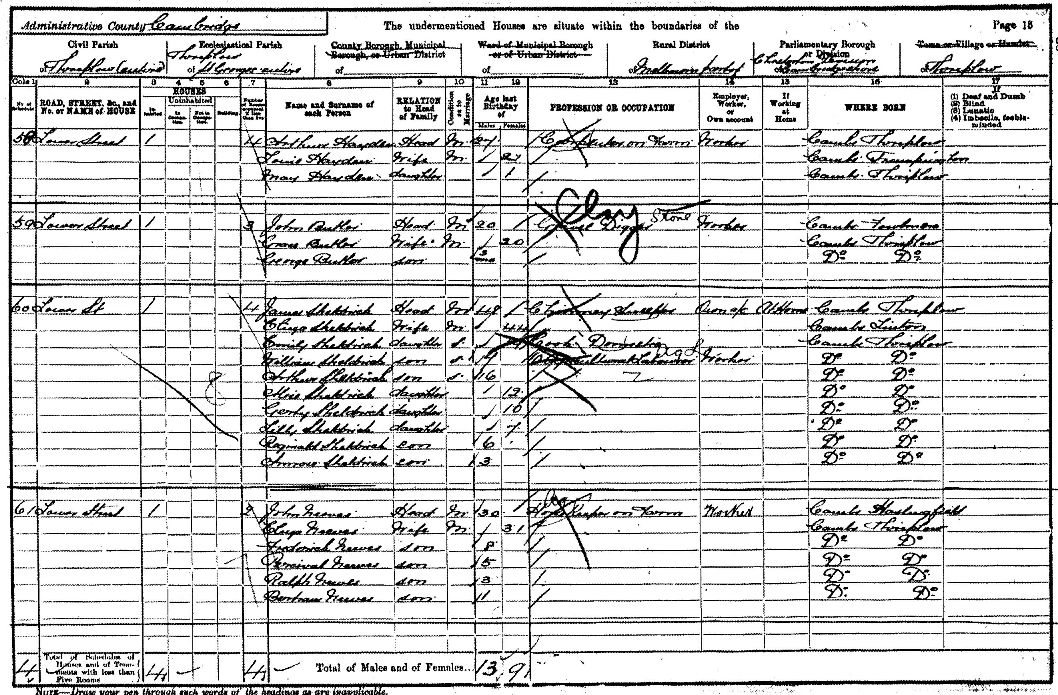 Administrative County Cambridge The undermentioned Houses are situate within the boundaries of the Page 15
Civil Parish Ecclesiastical Parish County Borough, Municipal Borough, or Urban District Ward of Municipal Borough or of Urban District Rural District Parliamentary Borough or Division Town or Village or Hamlet
of Thriplow of St Georges of of of Thriplow
Cols 1 2 3 4 5 6 7 8 9 10 11 12 13 14 15 16 17
ROAD, STREET, &c., and No. or NAME of HOUSE HOUSES Uninhabited Building Name and Surname of each Person RELATION to Head of Family Condition as to Marriage Age last Birthday of Males Females PROFESSION OR OCCUPATION Employer, Worker, or Own account If Working at Home WHERE BORN (1) Deaf and Dumb (2) Blind (3) Lunatic (4) Imbecile, feeble-minded
58 Lower Street 1 4 Arthur Hayden Head M 27 on Farm Worker Cambs Thriplow
Louie Hayden Wife M Cambs Trumpington
May Hayden daughter 1 Cambs Thriplow
Clay
59 Lower Street 1 3 John Butler Head M 20 Digger Stone Worker Cambs Fowlmere
Grace Butler Wife M 20 Cambs Thriplow
George Butler son 3 mos Do Do
60 Lower St 1 4 James Sheldrick Head M 48 Chimney Sweeper Own a/c At Home Cambs Thriplow
Eliza Sheldrick Wife M 44 Cambs Linton
Emily Sheldrick daughter S Cook Domestic Cambs Thriplow
William Sheldrick son S Worker Do Do
Arthur Sheldrick son S 16 Do Do
Sheldrick daughter 12 Do Do
Sheldrick daughter 10 Do Do
Lilly Sheldrick daughter 7 Do Do
Reginald Sheldrick son 6 Do Do
Sheldrick son 3 Do Do
61 Lower Street 1 2 John Neeves Head M 30 on Farm Worker Cambs Haslingfield
Eliza Neeves Wife M 31 Cambs Thriplow
Frederick Neeves son 8 Do Do
Percival Neeves son 5 Do Do
Ralph Neeves son 3 Do Do
Bertram Neeves son Do Do
4 Total of Schedules of Houses and of Tenements with less than Five Rooms 4 4 Total of Males and of Females... 13 9
NOTE—Draw your pen through such words of the headings as are inapplicable.